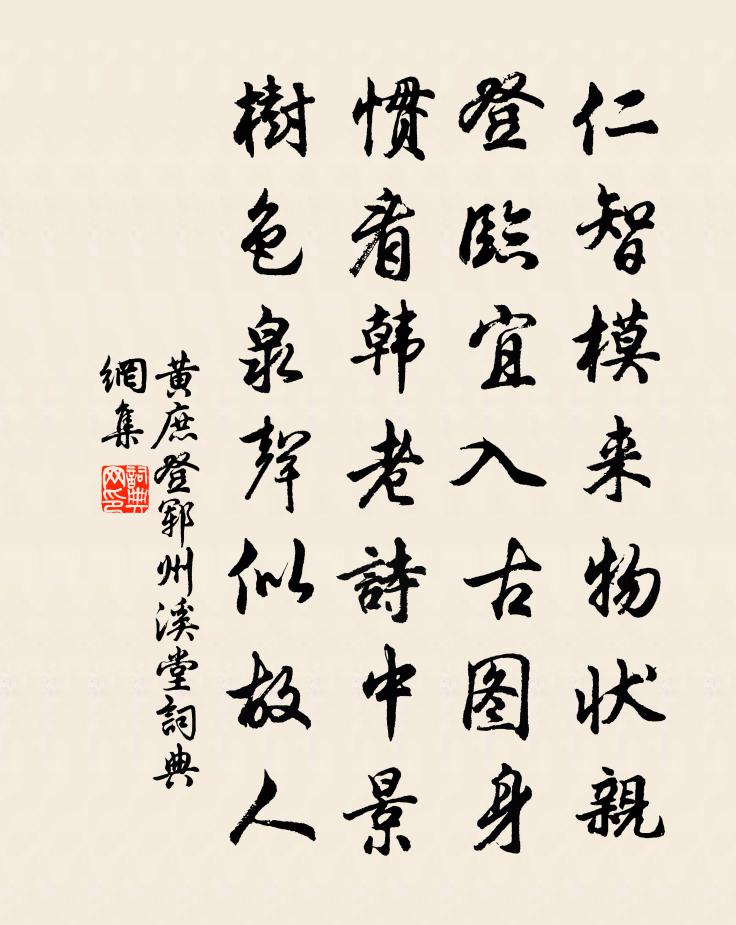 仁智模来物状親
登臨宜入古图身
慣看韩老詩中景
樹色泉聲似故人
黄庶登郓州溪堂詞典
網集
詞典
网印